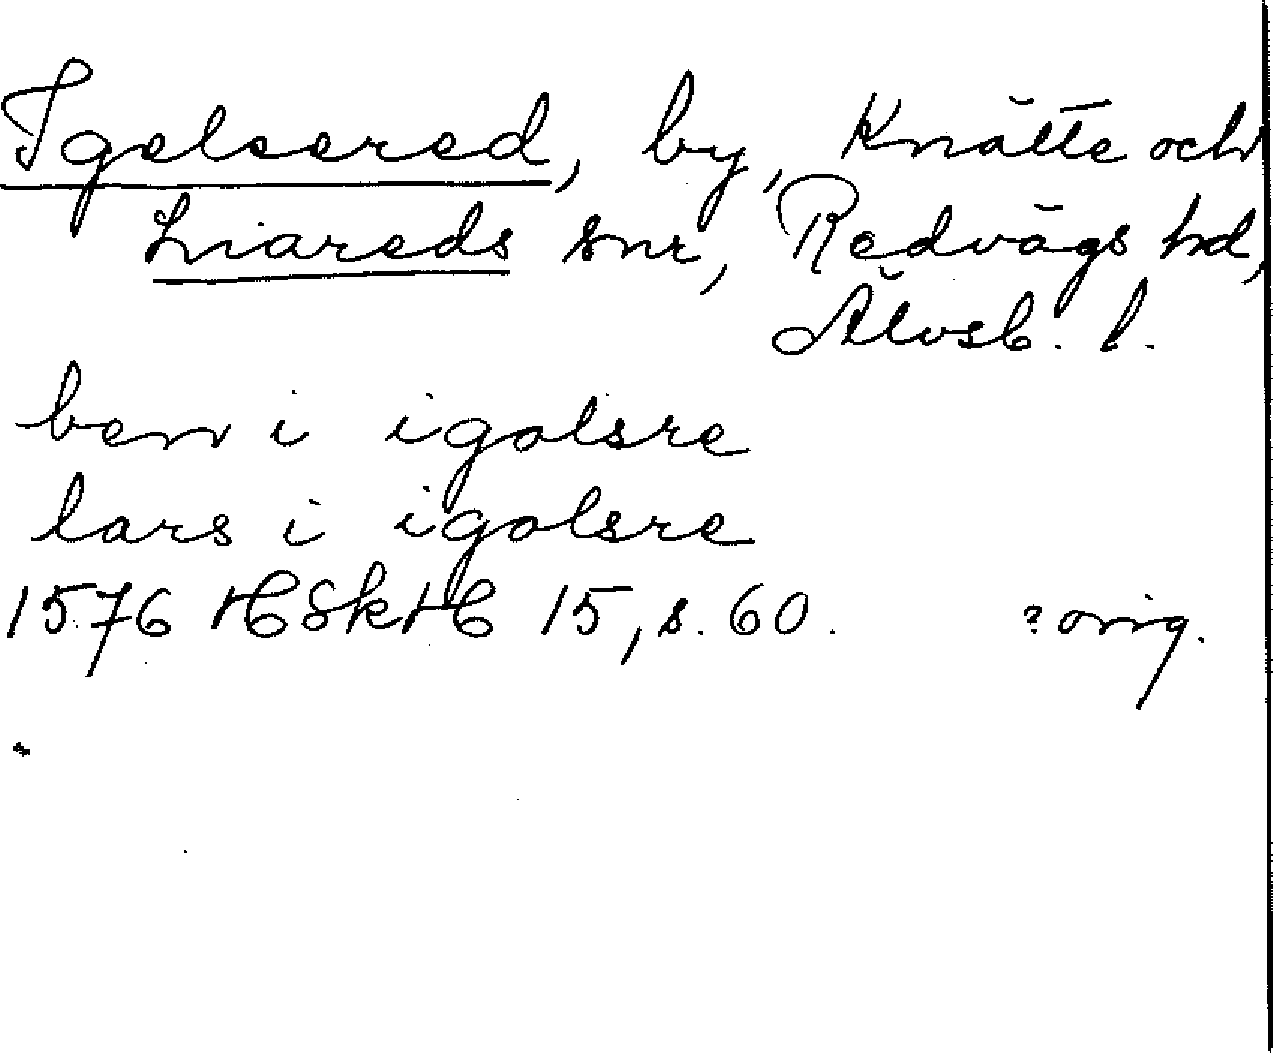 Igelsered, by, Knätte och
Liareds snr, Redvägs hd,
Älvsb. l.
benr i igolsre
lars i igolsre
1576 HSkH 15, s. 60. ? orig.